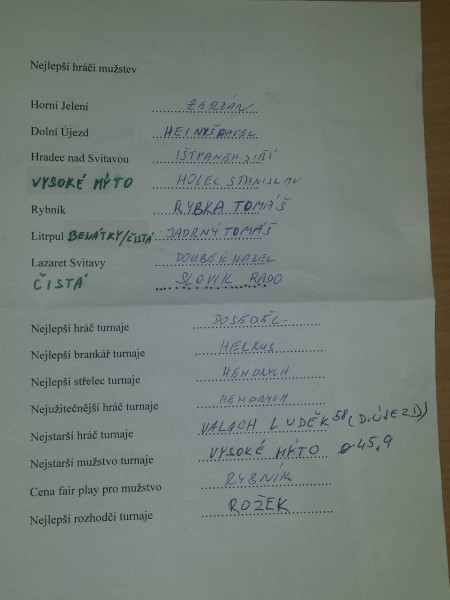 Nejlepší hráči mužstev
Horní Jelení ZERZÁN
Dolní Újezd HEINYŠ PAVEL
Hradec nad Svitavou JIŘÍ
VYSOKÉ MÝTO HOLEC STANISLAV
Rybník RYBKA TOMÁŠ
Litrpul BENÁTKY/ČISTÁ JADRNÝ TOMÁŠ
Lazaret Svitavy DOUBEK KAREL
ČISTÁ SLOVIK RADO
Nejlepší hráč turnaje POSEDĚL
Nejlepší brankář turnaje HELKUS
Nejlepší střelec turnaje HENDRYCH
Nejužitečnější hráč turnaje HENDRYCH
Nejstarší hráč turnaje VALACH LUDĚK 58 (D.ÚJEZD)
Nejstarší mužstvo turnaje VYSOKÉ MÝTO ø 45,9
Cena fair play pro mužstvo RYBNÍK
Nejlepší rozhodčí turnaje ROŽEK